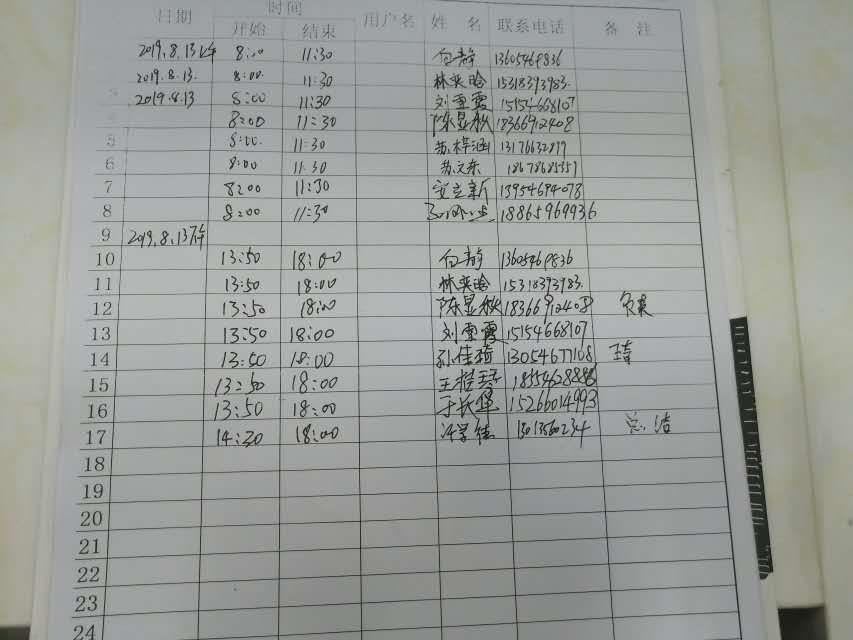 日期 时间 用户名 姓 名 联系电话 备 注
开始 结束
2019.8.13上午 8:00 11:30 白静 13605469836
2019.8.13. 8:00. 11:30 林奕晗 15318393983.
2019.8.13 8:00 11:30 刘雪霞 15154668107
8:00 11:30 陈显秋 18366912408
5 8:00. 11:30 苏梓涵 13176632877
6 8:00 11:30 苏文东 18678685357
7 8:00 11:30 安立新 13954694078
8 8:00 11:30 18865969936
9 2019.8.13下午
10 13:50 18:00 白静 13605469836
11 13:50 18:00 林奕晗 15318393983.
12 13:50 18:00 陈显秋 18366912408
13 13:50 18:00 刘雪霞 15154668107
14 13:50 18:00 孙佳琦 13054677108
15 13:50 18:00 18554628888
16 13:50 18:00 15266014993
17 14:30 18:00 13013560234 总洁
18
19
20
21
22
23
24